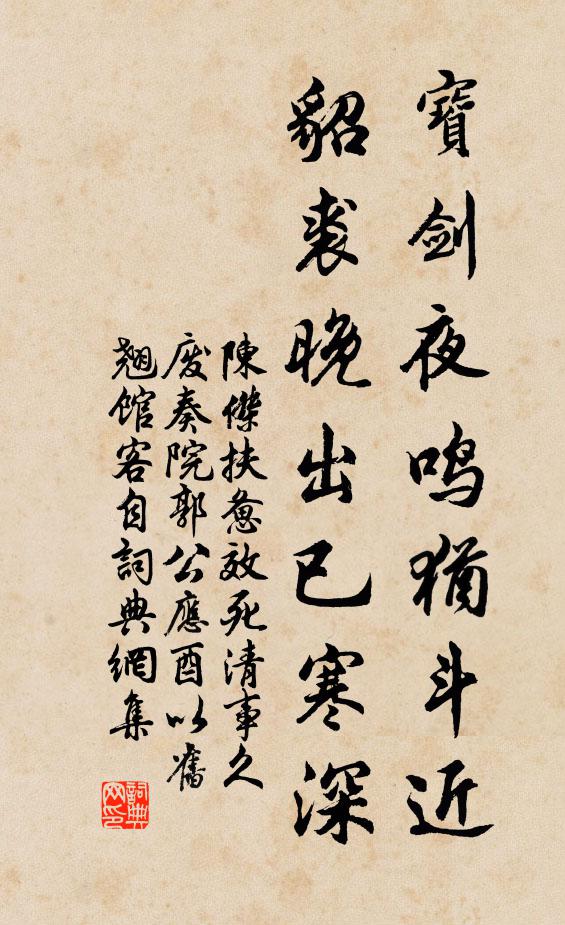 寶劍夜鸣猶斗近
貂裘晚出已寒深
陳傑扶惫效死清事久
废奏院郭公應酉以舊
翘馆客自詞典網集
詞典网印